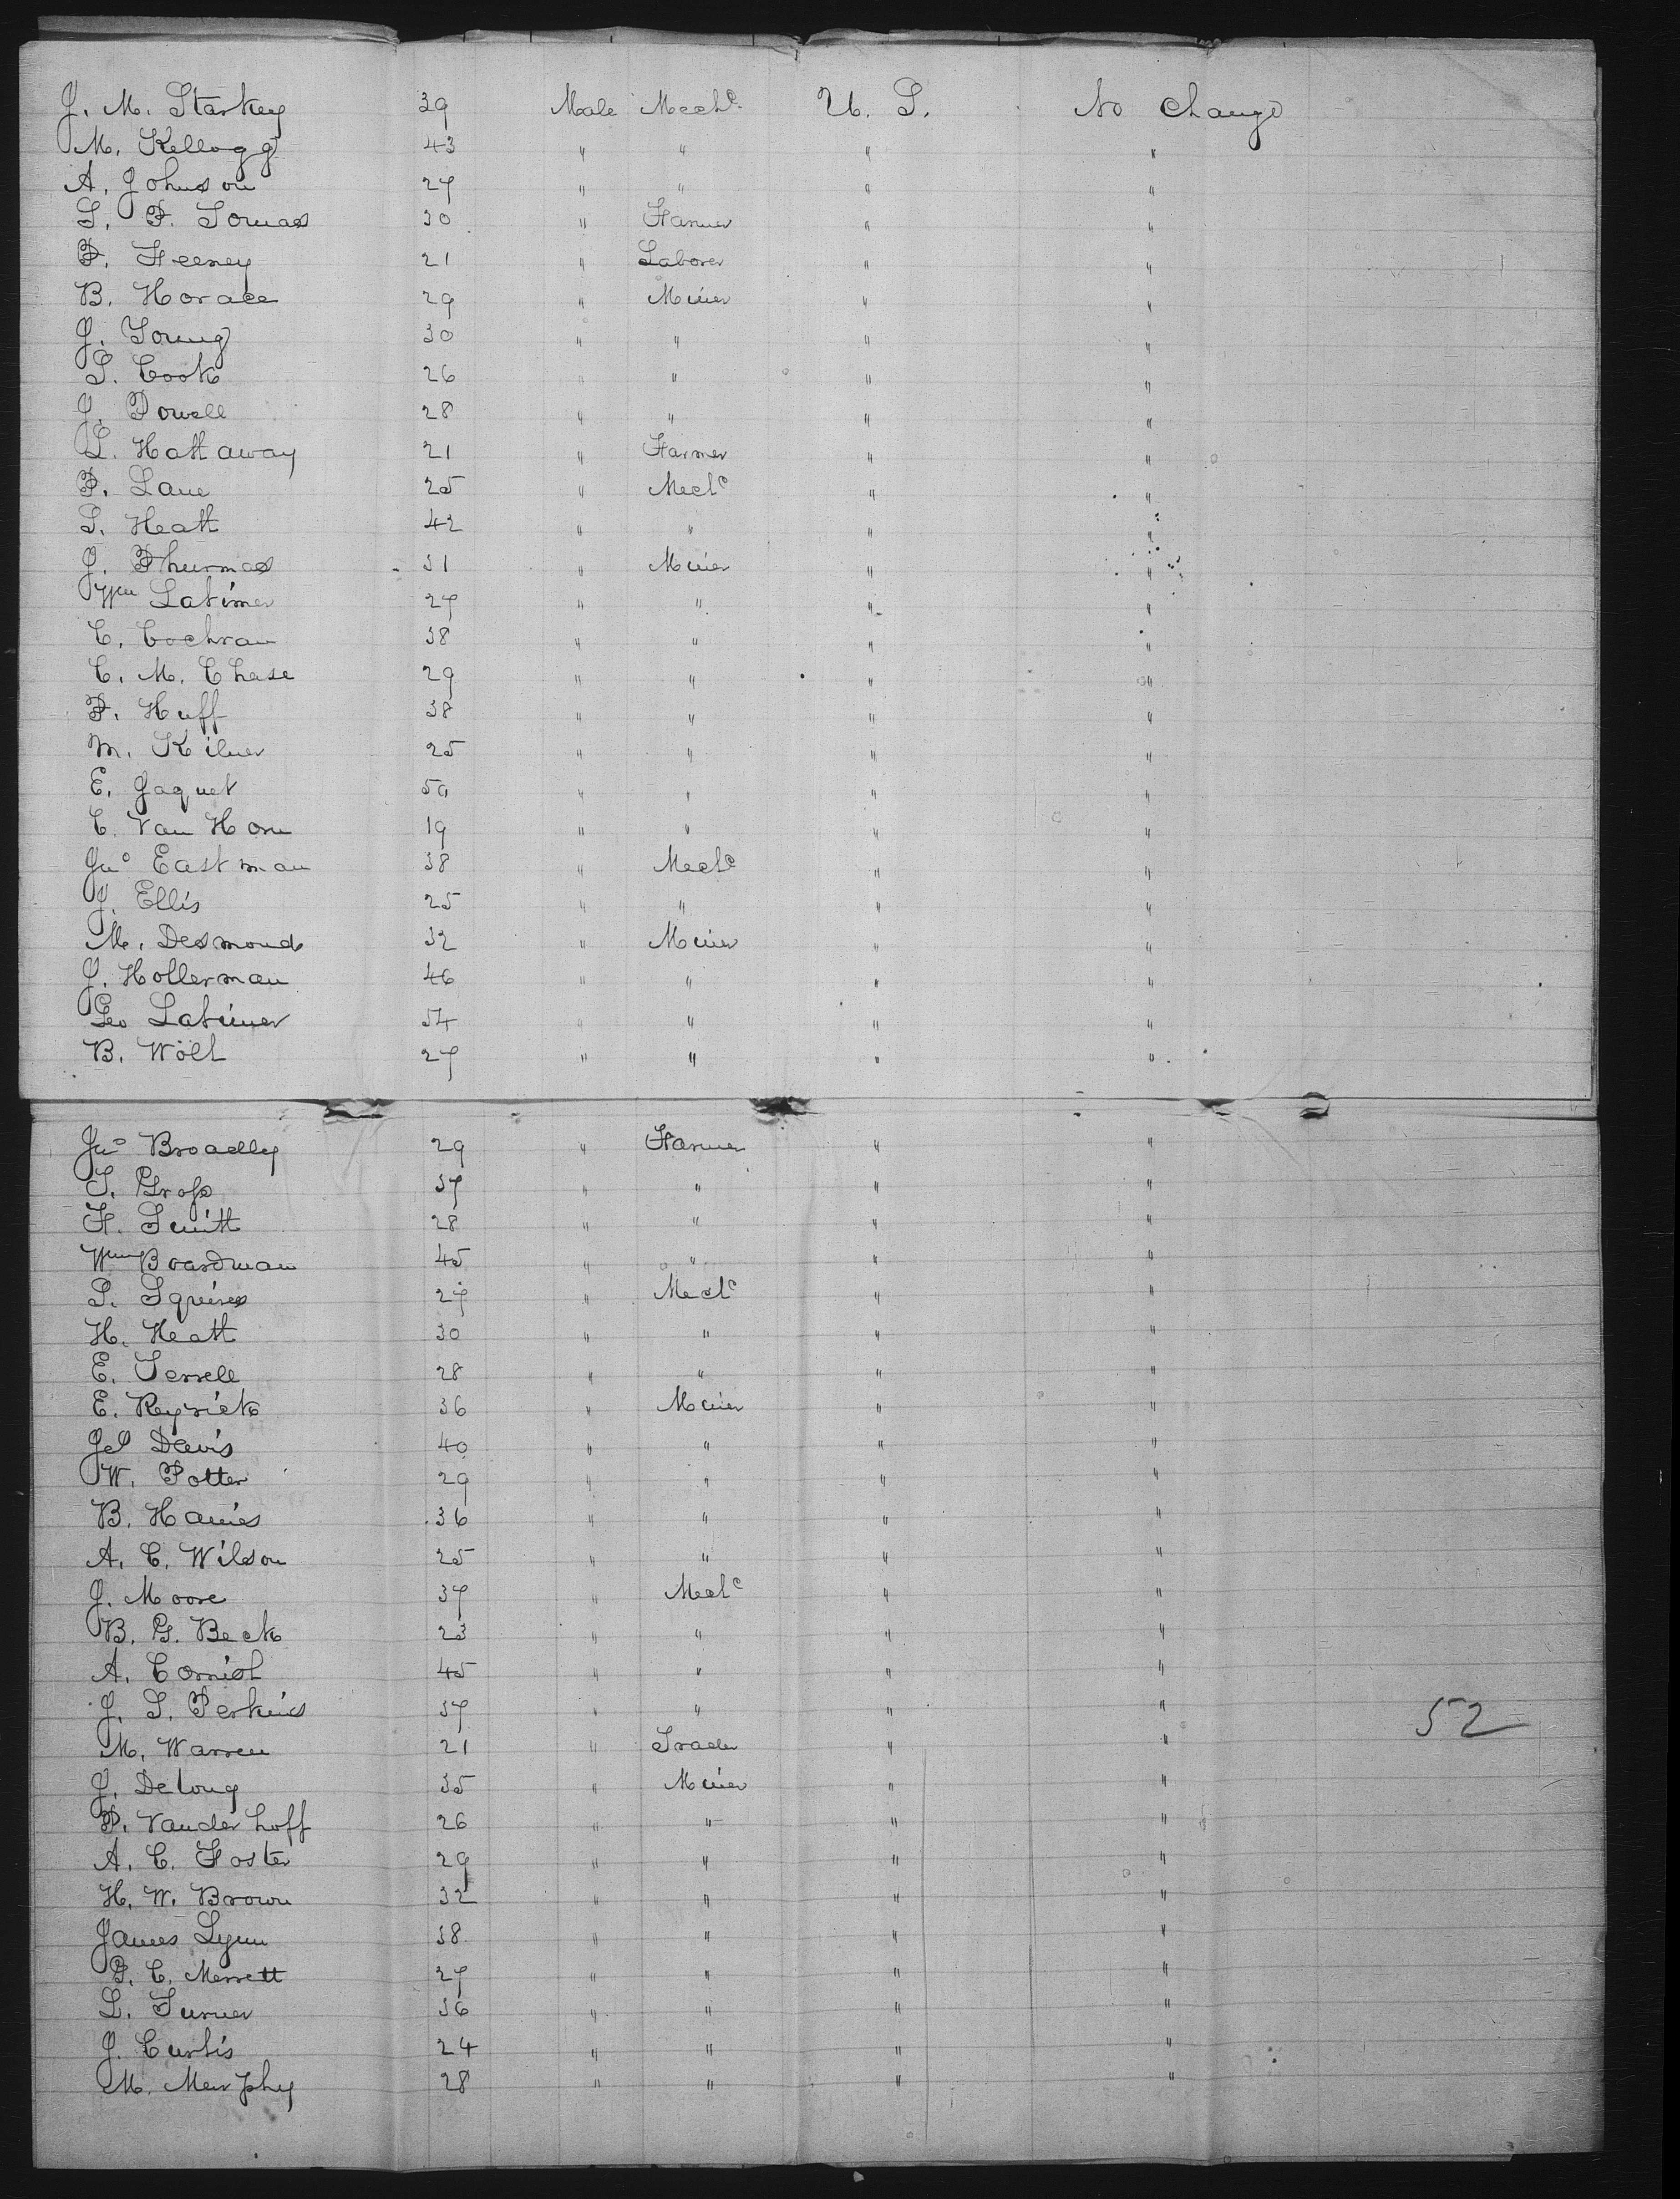 J. M. Starkey 39 Male Mechc U. S. No Change
M. Kellogg 43 " " " "
A. Johnson 27 " " " "
S. P. Tomas 30 " Farmer " "
P. Feeney 21 " Laborer " "
B. Horace 29 " Miner " "
J. Young 30 " " " "
S. Cook 26 " " " "
J. Powell 28 " " " "
L. Hattaway 21 " Farmer " "
P. Lane 25 " Mechc " "
S. Heath 42 " " " "
J. Thurmas 31 " Miner " "
Wm Latimer 27 " " " "
C. Cochran 38 " " " "
C. M. Chase 29 " " " "
P. Huff 38 " " " "
M. Kilner 25 " " " "
E. Jaquet 50 " " " "
C. Van Horn 19 " " " "
Jno Eastman 38 " Mechc " "
J. Ellis 25 " " " "
M. Desmond 32 " Miner " "
J. Hollerman 46 " " " "
Geo Latimer 54 " " " "
B. 27 " " " "
Jno Broadley 29 " Farmer " "
T. Gross 37 " " " "
F. Smith 28 " " " "
Wm Boardman 45 " " " "
S. Squires 27 " Mechc " "
H. Heath 30 " " " "
E. Terrell 28 " " " "
E. 36 " Miner " "
Jef Davis 40 " " " "
W. Potter 29 " " " "
B. Hanies 36 " " " "
A. C. Wilson 25 " " " "
J. Moore 37 " Mechc " "
B. G. Beck 23 " " " "
A. Cornish 45 " " " "
J. S. Perkins 37 " " " " 52
M. Warren 21 " Trader " "
J. Delong 35 " Miner " "
P. Vanderhoff 26 " " " "
A. C. Foster 29 " " " "
H. W. Brown 32 " " " "
James Lynn 38 " " " "
G. C. Merrett 27 " " " "
L. Turner 36 " " " "
J. Curtis 24 " " " "
M. Murphy 28 " " " "